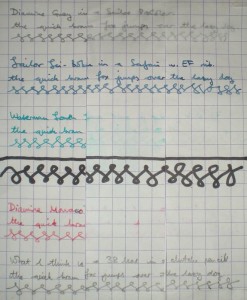 Diamine Gray in a Sailor
the quick brown fox jumps over the lazy dog
Sailor in a Safari w. EF nib.
the quick brown fox jumps over the lazy dog
Waterman South
the quick brown
Diamine
the quick brown
What I think is a 3B lead in a clutch pencil
the quick brown fox jumps over the lazy dog